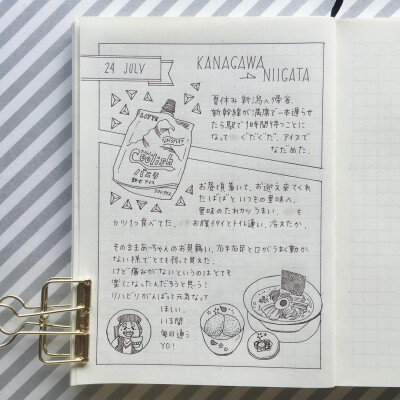 24 JULY
KANAGAWA
NIIGATA
夏休み 新潟へ帰省。
新幹線が満席で一本遅らせ
たら駅で1時間待つことに
なって ぐだぐだ。アイスで
なだめた。
LOTTE
Coolish
バニラ
お昼頃着いて、お迎え来てくれ
たばばと いつもの里味へ。
里味のたれカツうまい。 も
ガリガリ食べてた。 お腹イタイとトイレ通い。冷えたか。
そのままあーちゃんのお見舞い。左半左足と口がうまく動か
ない様でとても弱って見えた。
けど痛みがないというのはとても
楽になったんだろうと思う!
リハビリがんばって元気なって
ほしい。
いる間
毎日通う
YO!